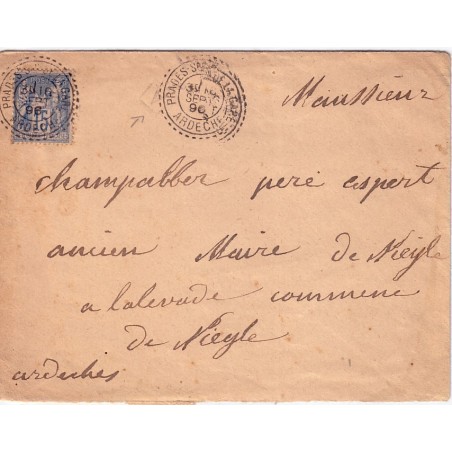 PRADES
30
SEPT
96
ARDECHE
Maussieur
champabber peré expert
ancien Maire de Nieyle
a lalevade commene
de Nieyle
ardeches